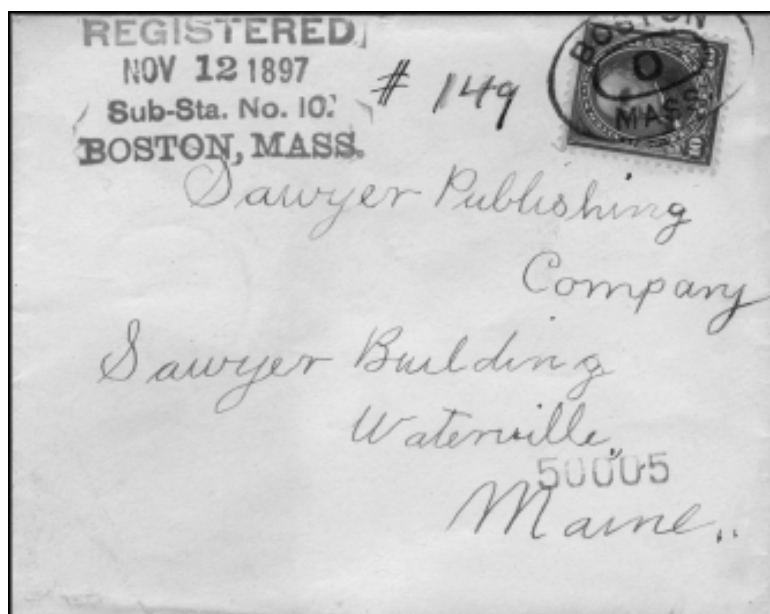 REGISTERED
NOV 12 1897
Sub-Sta. No. 10.
BOSTON, MASS.
# 149
BOSTON
O
MASS.
10
Sawyer Publishing
Company
Sawyer Building
Waterville,
50005
Maine..